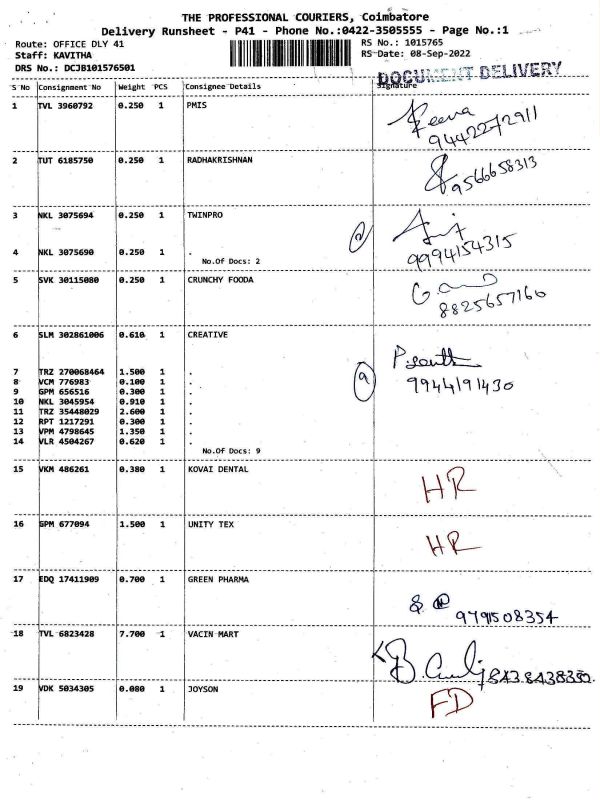 THE PROFESSIONAL COURIERS, Coimbatore
Delivery Runsheet - P41 - Phone No.:0422-3505555 - Page No.:1
Route: OFFICE DLY 41 RS No.: 1015765
Staff: KAVITHA RS Date: 08-Sep-2022
DRS No.: DCJB101576501
DOCUMENT DELIVERY
S No Consignment No Weight PCS Consignee Details Signature
1 TVL 3960792 0.250 1 PMIS
9442272911
2 TUT 6185750 0.250 1 RADHAKRISHNAN
9566658313
3 NKL 3075694 0.250 1 TWINPRO
4 NKL 3075690 0.250 1 . 2 9994154315
No.Of Docs: 2
5 SVK 30115080 0.250 1 CRUNCHY FOODA
8825657160
6 SLM 302861006 0.610 1 CREATIVE
7 TRZ 270068464 1.500 1 .
8 VCM 776983 0.100 1 . 9 9944191430
9 GPM 656516 0.300 1 .
10 NKL 3045954 0.910 1 .
11 TRZ 35448029 2.600 1 .
12 RPT 1217291 0.300 1 .
13 VPM 4798645 1.350 1 .
14 VLR 4504267 0.620 1 .
No.Of Docs: 9
15 VKM 486261 0.380 1 KOVAI DENTAL
HR
16 GPM 677094 1.500 1 UNITY TEX
HR
17 EDQ 17411909 0.700 1 GREEN PHARMA
9791508354
18 TVL 6823428 7.700 1 VACIN MART
19 VDK 5034305 0.080 1 JOYSON
FD